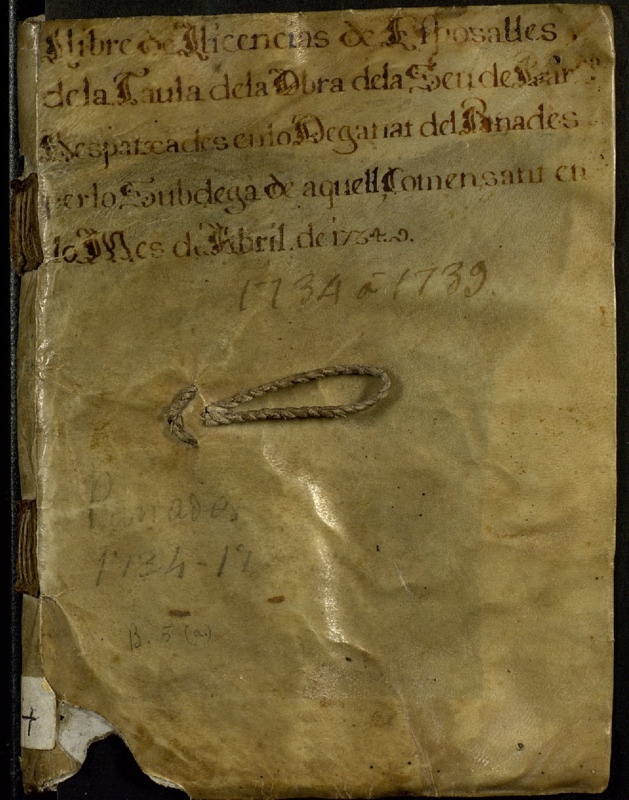 Llibre de Llicencias de Esposalles
de la Taula de la Obra de la Seu de Bar.ⁿᵃ
Despatxades en lo Deganat del Panades
per lo Subdega de aquell, Comensant en
lo Mes de Abril. de 1734.
1734 a 1739.
Panades
1734-17
B. 5 (a.)
4